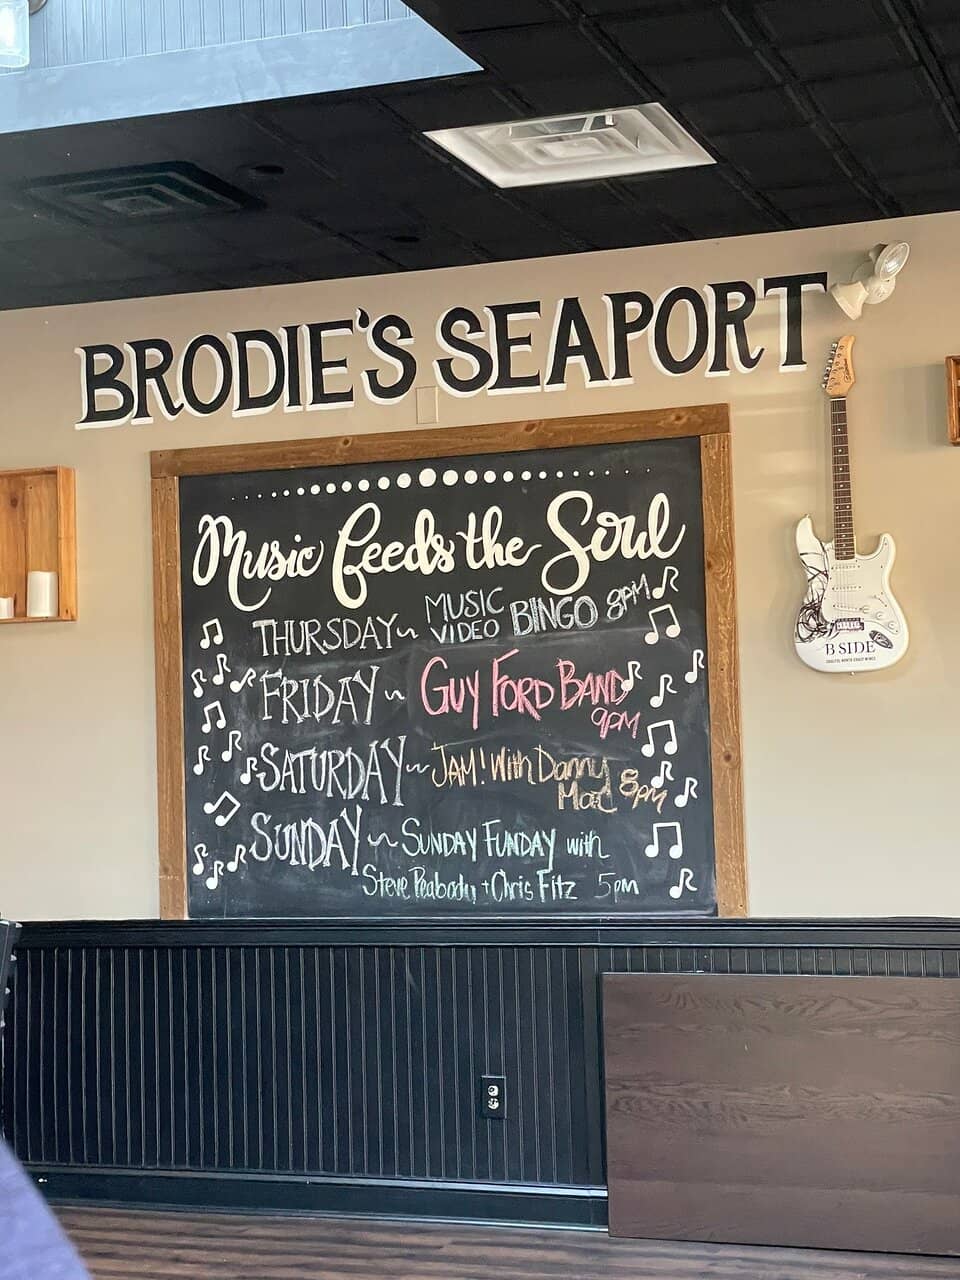 BRODIE'S SEAPORT
Music feeds the Soul
THURSDAY~ MUSIC VIDEO BINGO 8PM
FRIDAY ~ GUY FORD BAND
9PM
SATURDAY ~ JAM! With Danny
Mac 8PM
SUNDAY ~ SUNDAY FUNDAY with
Steve Peabody + Chris Fitz 5pm
B SIDE